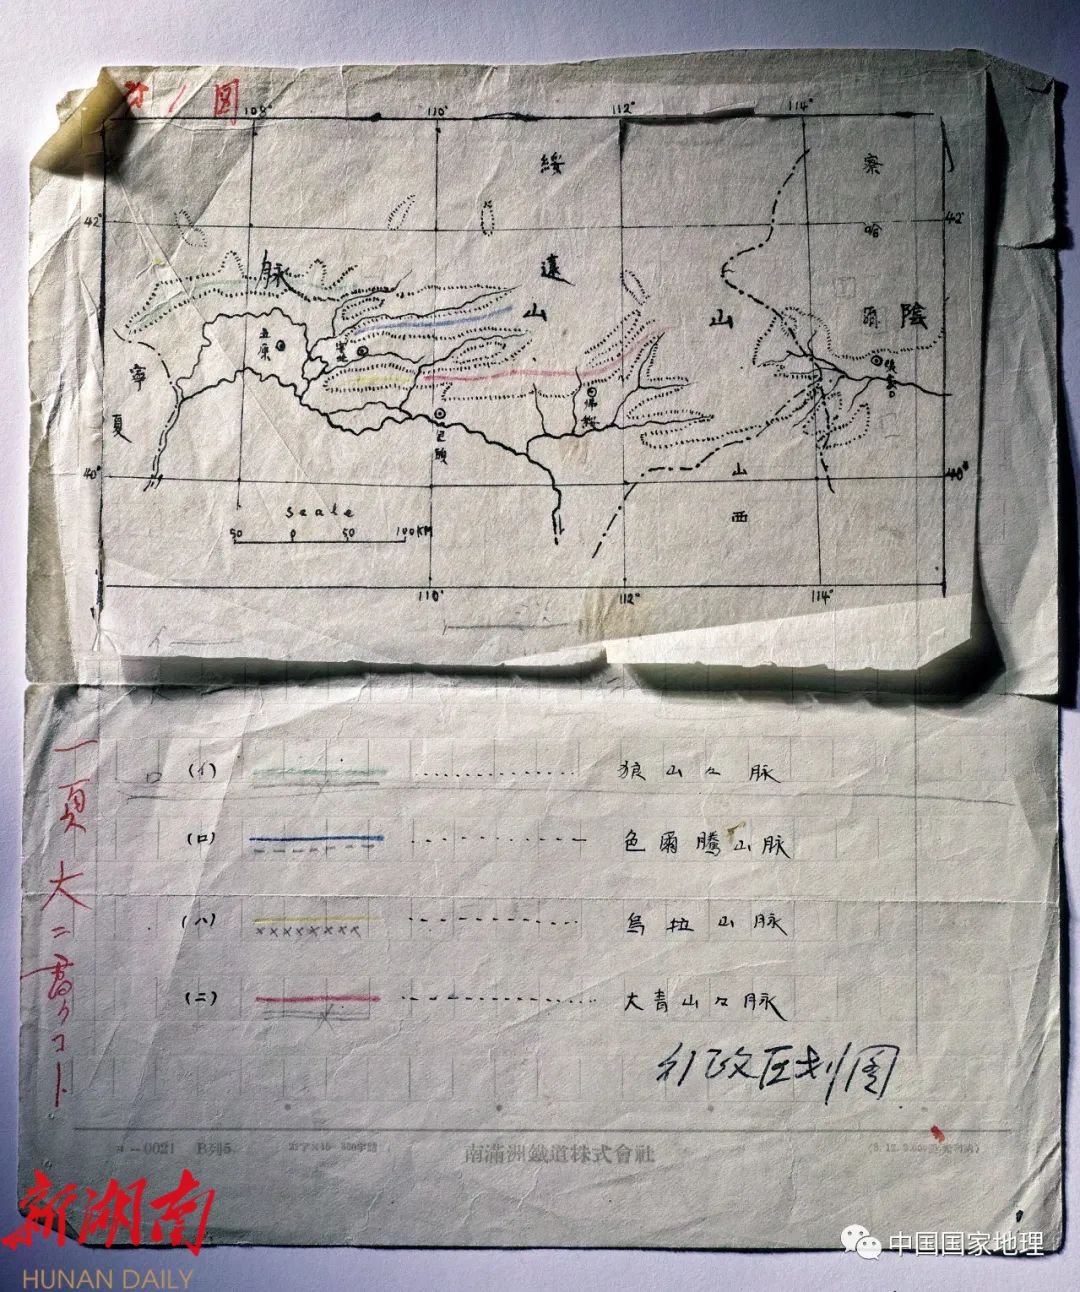 第1図
108° 110° 112° 114°
綏 察
42° 42°
哈
脉 遠
山 山 爾 陰
五原
寧夏
張家口
包頭
40° 40°
山西
Scale
50 0 50 100KM
110° 112° 114°
(イ) 狼山々脉
(ロ) 色爾騰山脉
(ハ) 烏拉山脉
(ニ) 大青山々脉
一頁大ニ書クコト
行政区划图
南滿洲鐵道株式會社
新湖南
HUNAN DAILY
中国国家地理